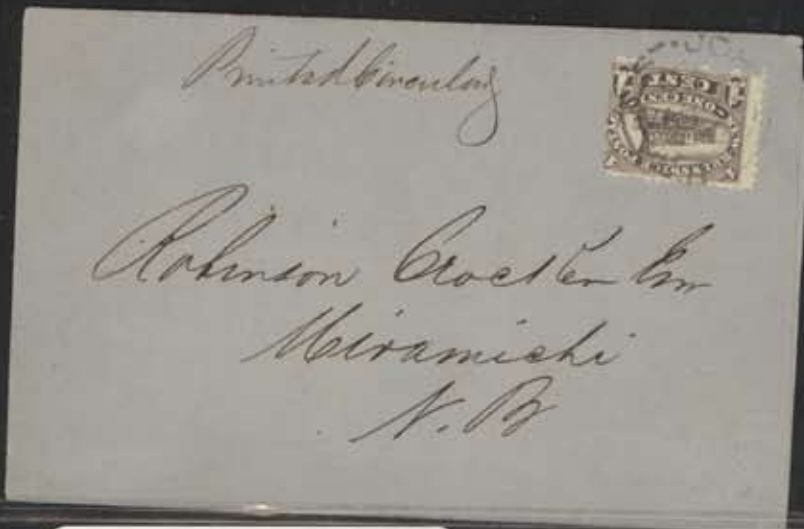 Printed Circular
Robinson Crocker Esq
Miramichi
N. B
ONE CENT
CENT